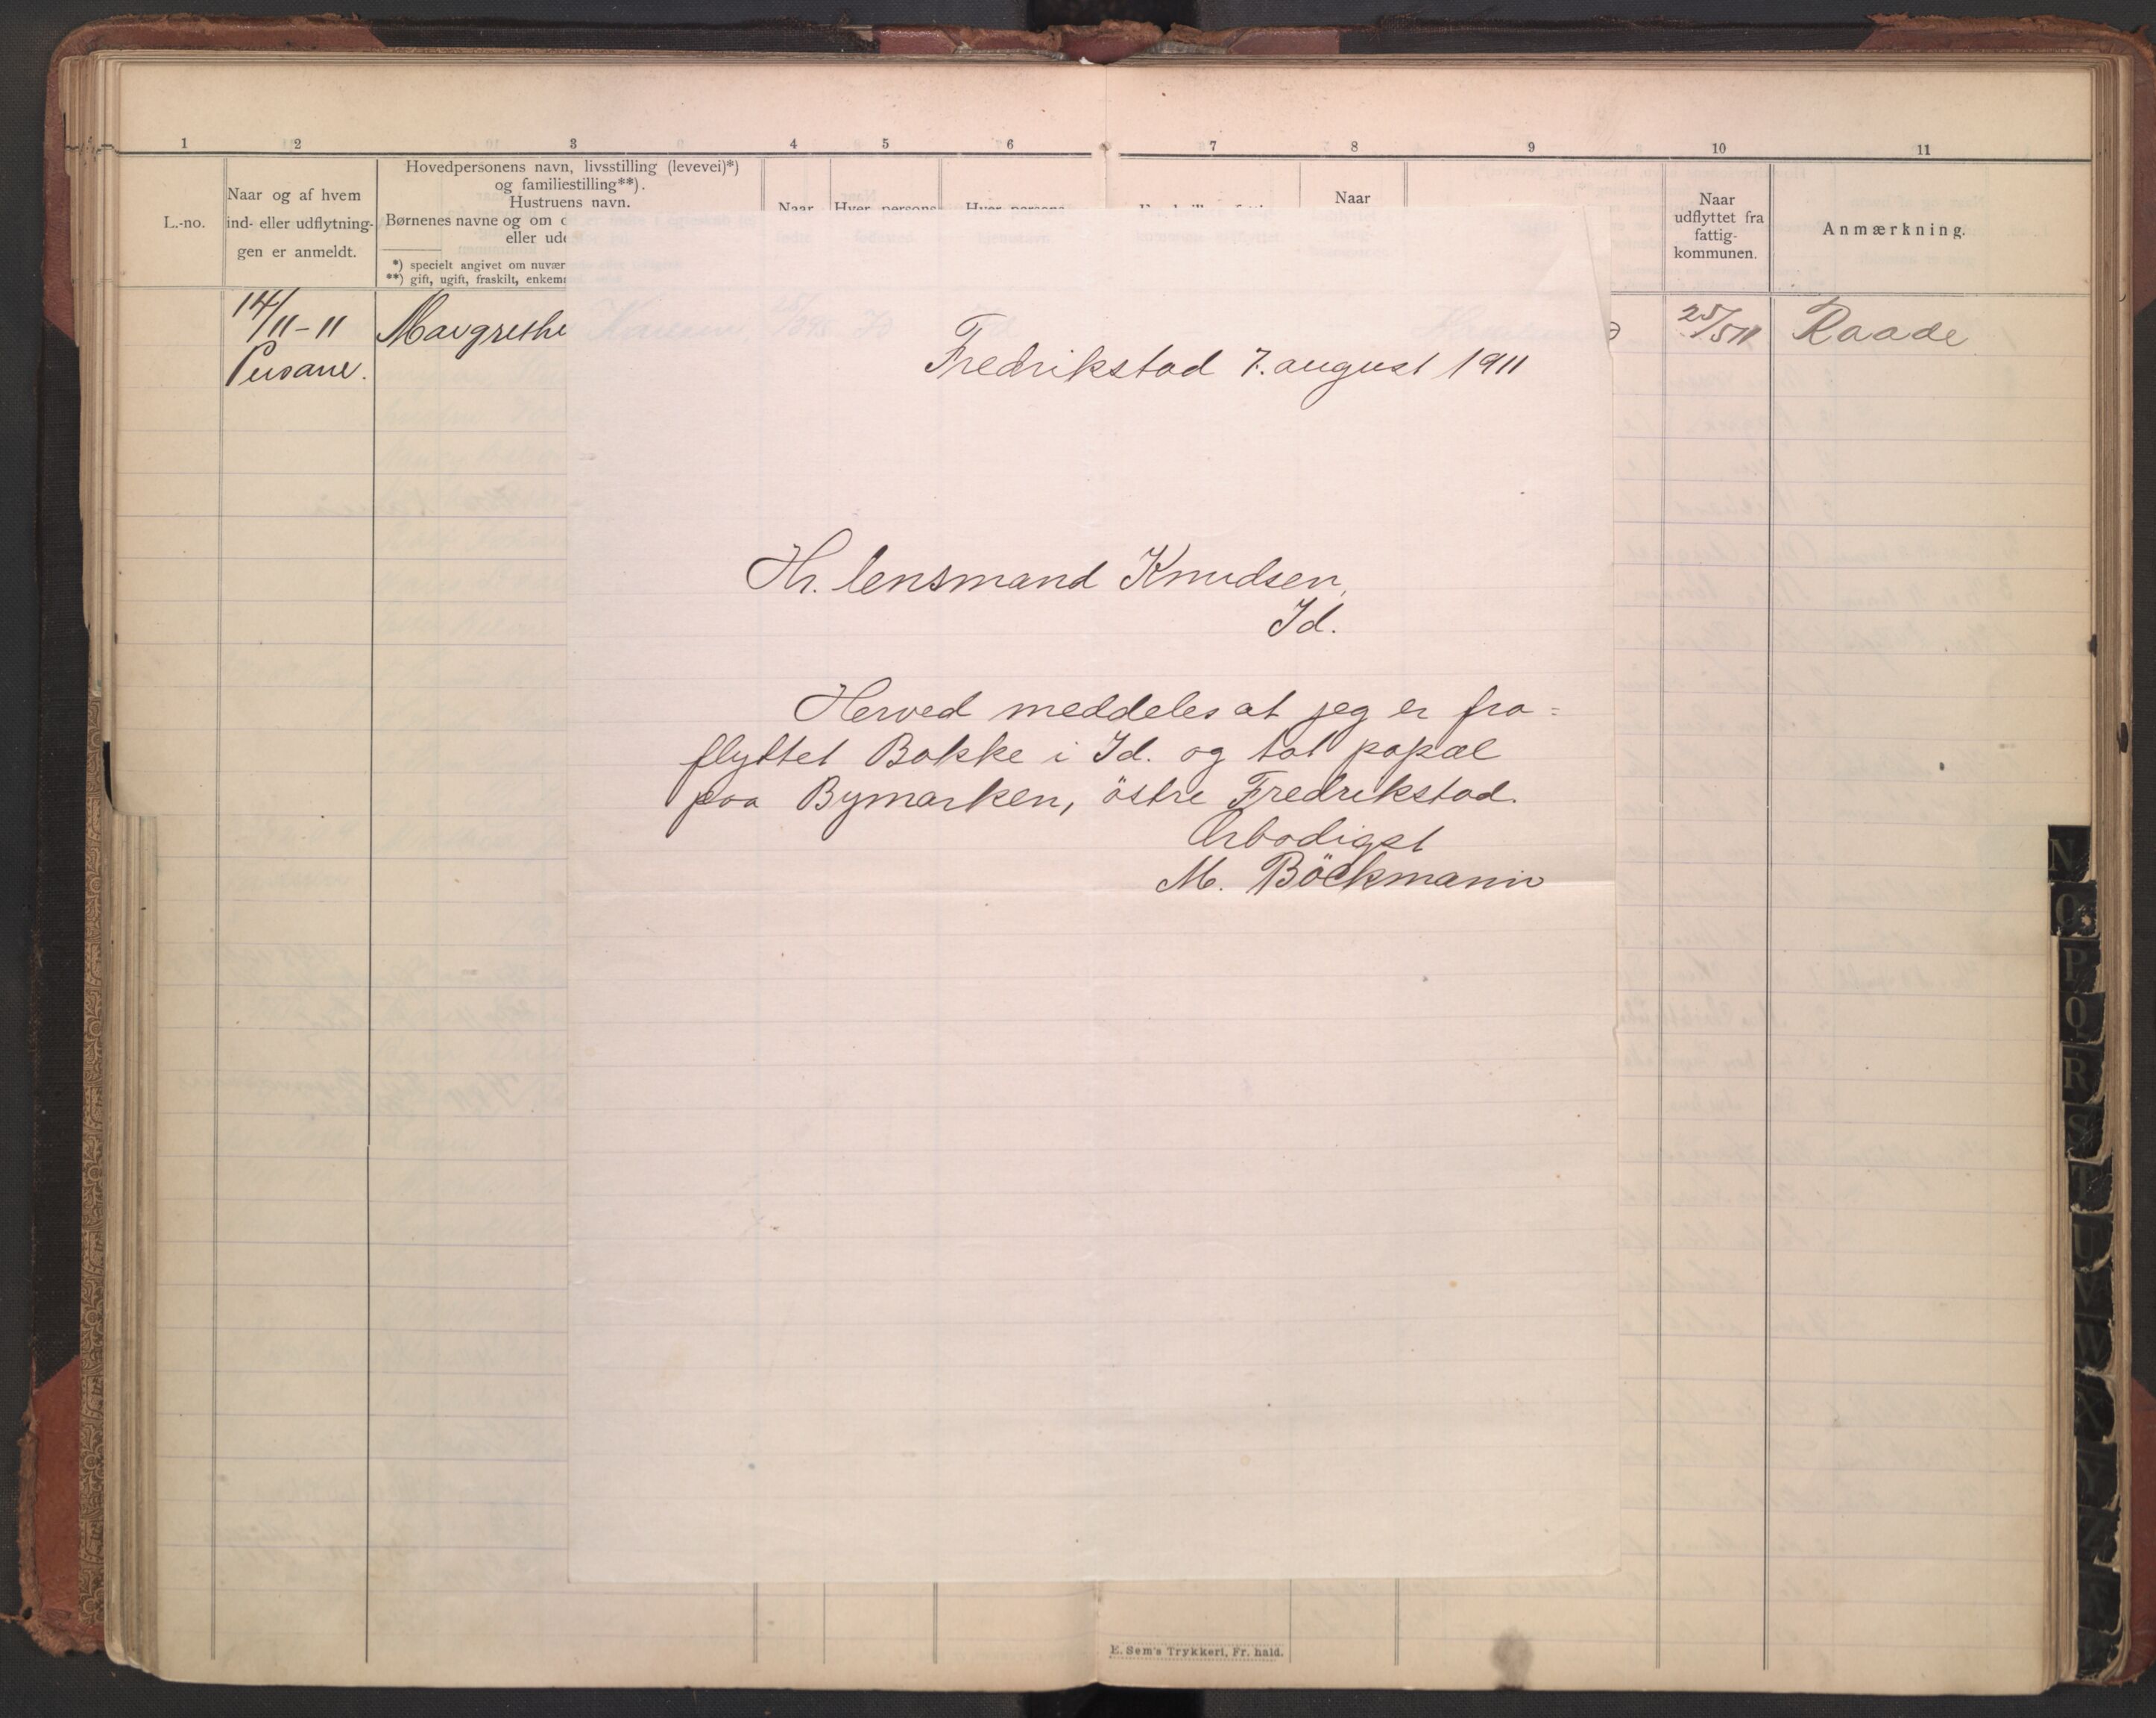 1 2 3 4 5 6 7 8 9 10 11
L.-no.
Naar og af hvem
ind- eller udflytnin-
gen er anmeldt.
Hovedpersonens navn, livsstilling (levevei)*)
og familiestilling**).
Hustruens navn.
Børnenes navne og om
eller
*) specielt angivet om
**) gift, ugift, fraskilt,
Naar
Hver persons
Hver persons
Naar
Naar
udflyttet fra
fattig-
kommunen.
Anmærkning.
14/11-11
Margrethe
25/5 11
Raade
Fredrikstad 7. august 1911
Hr. lensmand Knudsen,
Id.
Herved meddeles at jeg er fra=
flyttet Bakke i Id. og tat popæl
paa Bymarken, östre Fredrikstad.
Ærbödigst
M. Böckmann
E. Sem's Trykkeri, Fr. hald.
N
O
P
Q
R
S
T
U
V
W
X
Y